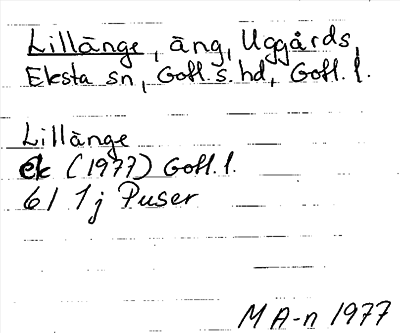 Lillänge, äng, Uggårds,
Eksta sn, Gotl. s. hd, Gotl. l.
Lillänge
ek (1977) Gotl. l.
61 1j Puser
MA-n 1977